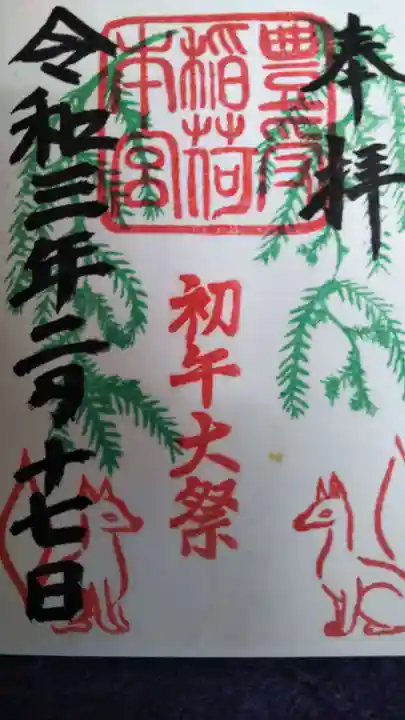 奉拝
豊受
稲荷
本宮
初午大祭
令和三年二月十七日